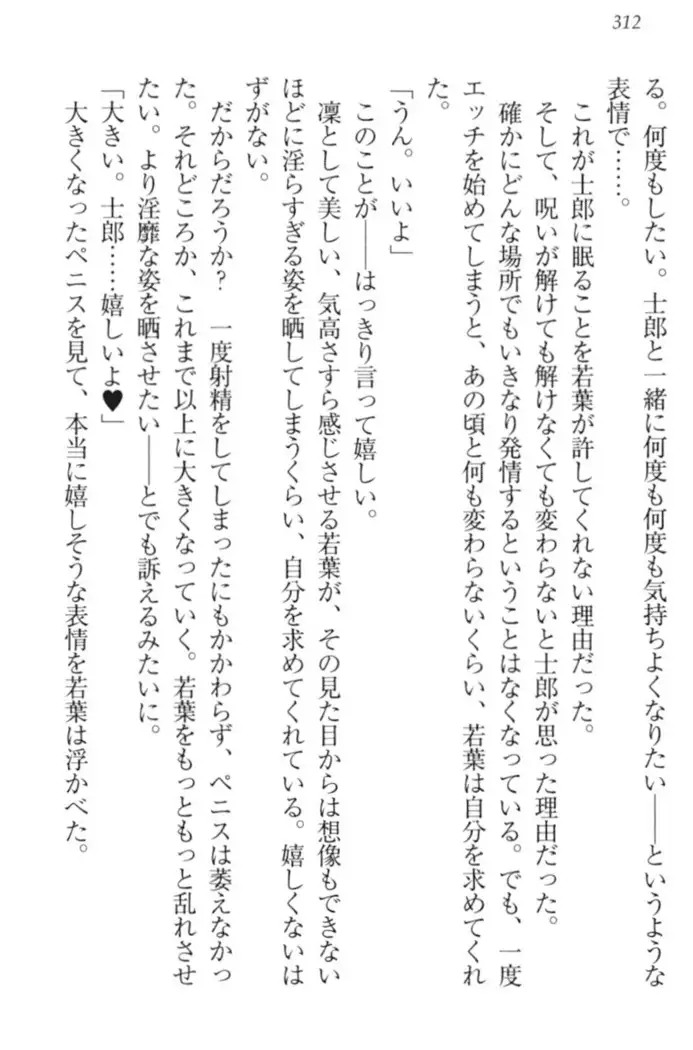 312
る。何度もしたい。士郎と一緒に何度も何度も気持ちよくなりたい――というような
表情で……。
これが士郎に眠ることを若葉が許してくれない理由だった。
そして、呪いが解けても解けなくても変わらないと士郎が思った理由だった。
確かにどんな場所でもいきなり発情するということはなくなっている。でも、一度
エッチを始めてしまうと、あの頃と何も変わらないくらい、若葉は自分を求めてくれ
た。
「うん。いいよ」
このことが――はっきり言って嬉しい。
凜として美しい、気高さすら感じさせる若葉が、その見た目からは想像もできない
ほどに淫らすぎる姿を晒してしまうくらい、自分を求めてくれている。嬉しくないは
ずがない。
だからだろうか？　一度射精をしてしまったにもかかわらず、ペニスは萎えなかっ
た。それどころか、これまで以上に大きくなっていく。若葉をもっともっと乱れさせ
たい。より淫靡な姿を晒させたい――とでも訴えるみたいに。
「大きい。士郎……嬉しいよ♥」
大きくなったペニスを見て、本当に嬉しそうな表情を若葉は浮かべた。